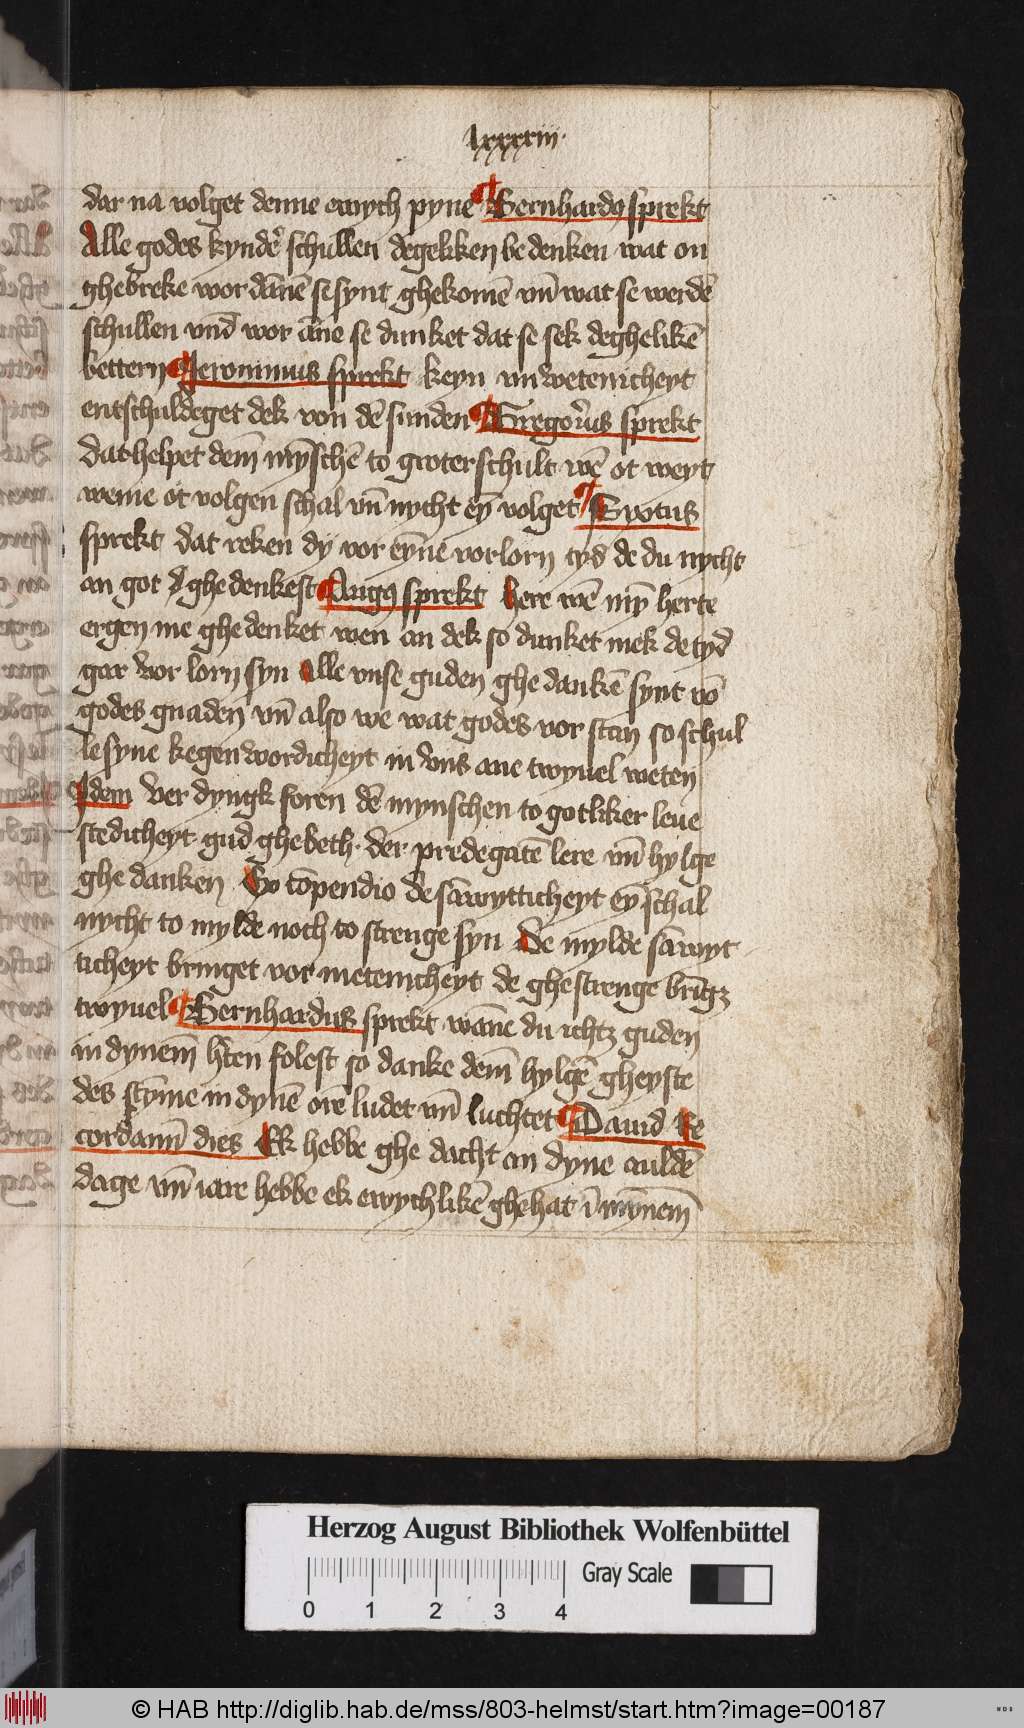 lxxxxiii
dar na volget denne ewych pyne ¶ Bernhardꝯ sprekt
Alle godes kynder schullen degelikken bedenken wat on
ghebreke wor dānē se synt ghekomē vn̄ wat se werdē
schullen vnd wor āne se dunket dat se sek deghelikē
bettern ¶ Jeronimus sprekt keyn vnwetenicheyt
entschuldeget dek von dē sunden ¶ Gregorius sprekt
dat helpet dem̄ mȳschē to groter schult wē ot weyt
weme ot volgen schal vn̄ nycht eȳ volget ¶ Syxtus
sprekt dat reken dy vor eȳne vorlorn tyd de du nycht
an got ghedenkest ¶ Augꝯ sprekt here wē mȳ herte
ergen me ghedenket wen an dek so dunket mek de tyd
gar vor lorn syn Alle vnse guden ghe dankē synt vō
godes gnaden vn̄ also we wat godes vor stan so schul
le syne kegenwordicheyt in vns ane twyuel weten
Idem Ver dyngk foren dē mynschen to gotliker leue
stedicheyt gud ghebeth der predegatē lere vn̄ hylge
ghe danken Ex cōpendio de sāwytticheyt eȳ schal
nycht to mylde noch to strenge syn De mylde sāwyt
ticheyt bringet vormetenicheyt de ghestrenge brīgꝫ
twyuel ¶ Bernhardus sprekt wāne du ichtꝫ guden
in dynem̄ hten folest so danke dem̄ hylgē gheyste
des stȳme in dynē orē ludet vn̄ luchtet ¶ Dauid Re
cordam̄ dies Ek hebbe ghe dacht an dyne auldē
dage vn̄ iare hebbe ek ewychlikē ghehat ī mynem̄
Herzog August Bibliothek Wolfenbüttel
Gray Scale
0 1 2 3 4
© HAB http://diglib.hab.de/mss/803-helmst/start.htm?image=00187